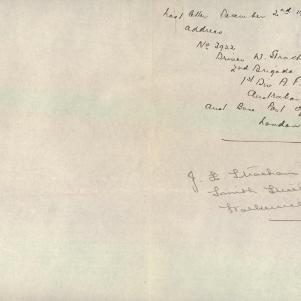 Last letter December 2nd 1
address
No 2922
Driver W. Strach
2nd Brigade
1st Div A.F.
Australian
Aust Base Post Of
London
J. L. Strachan
Smith Street